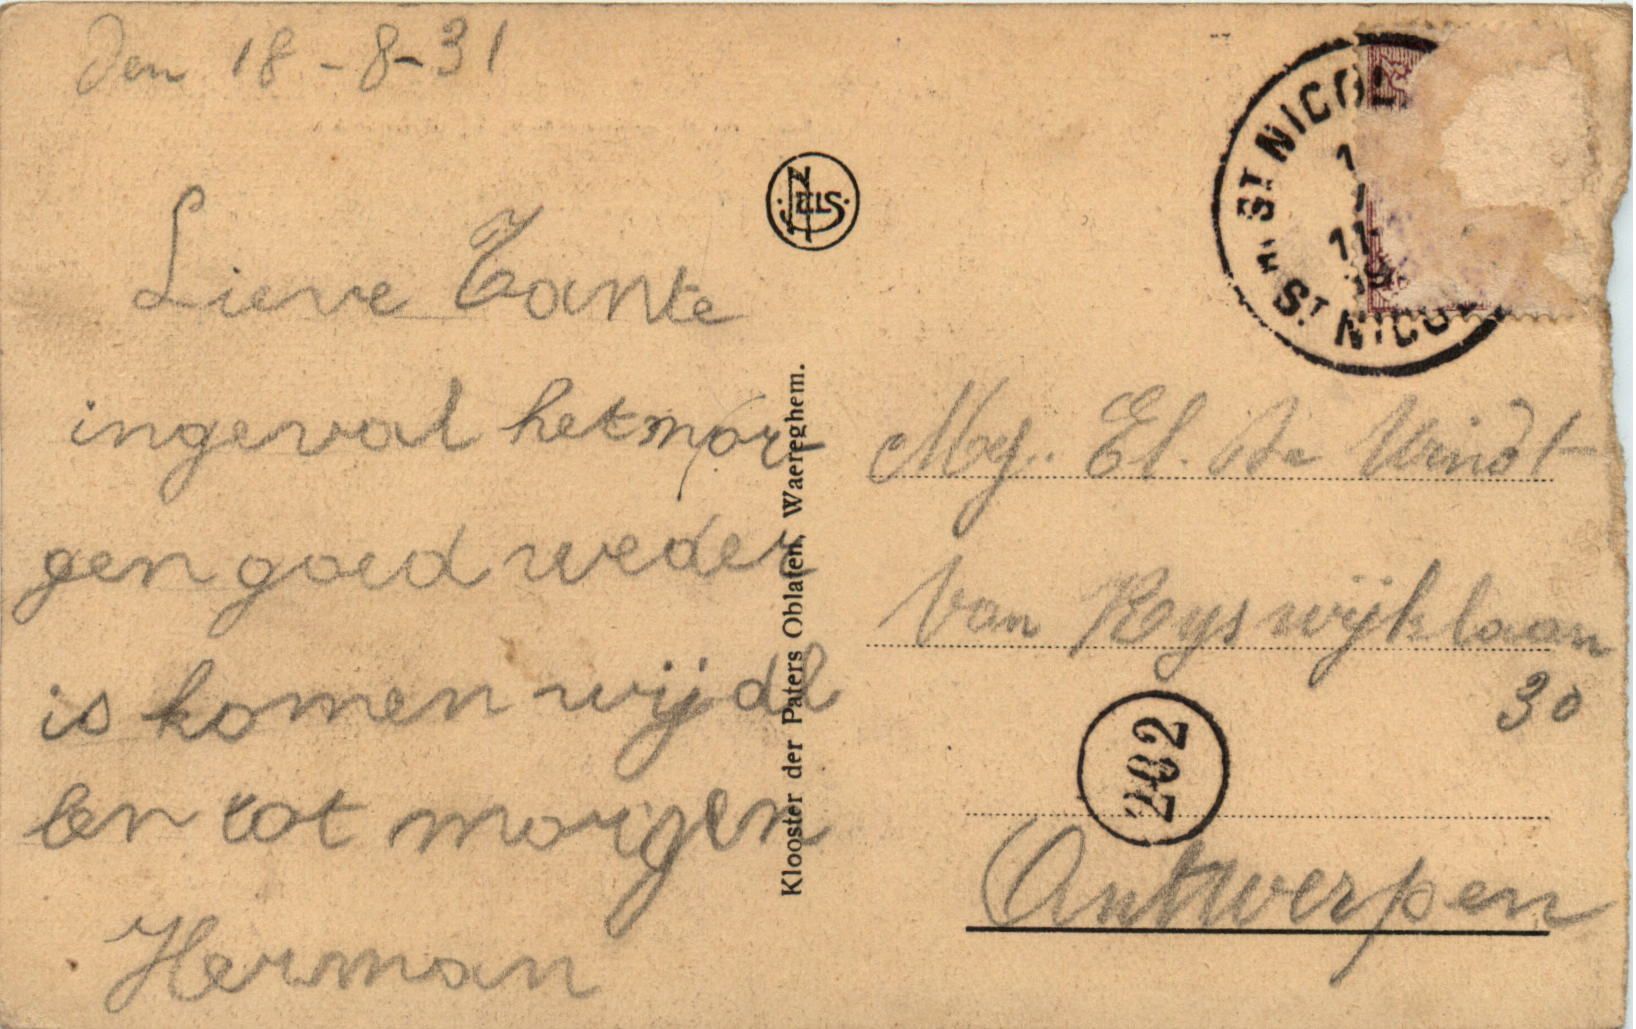 Den 18-8-31
Lieve Tante
ingeval het mor-
gen goed weder
is komen wij dl
len tot morgen
Herman
Klooster der Paters Oblaten, Waereghem.
NELS
ST NICOL
11
ST NICO
Mej. El. De Windt
Van Ryswijklaan
30
232
Antwerpen